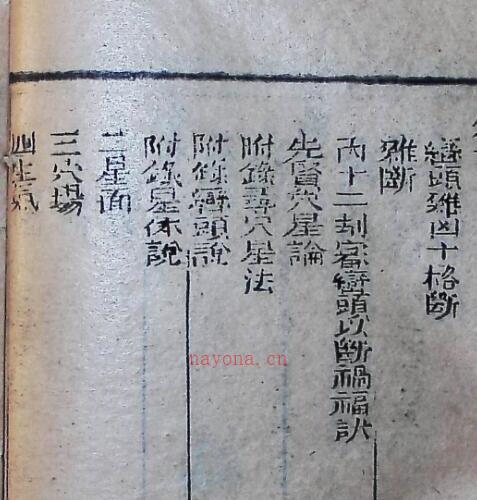 巒頭雜凶十格斷
雜斷
內十二刦審巒頭以斷禍福訣
先審穴星論
附錄尋穴星法
附錄巒頭說
附錄星体說
二星面
三穴場
四生氣
nayona.cn